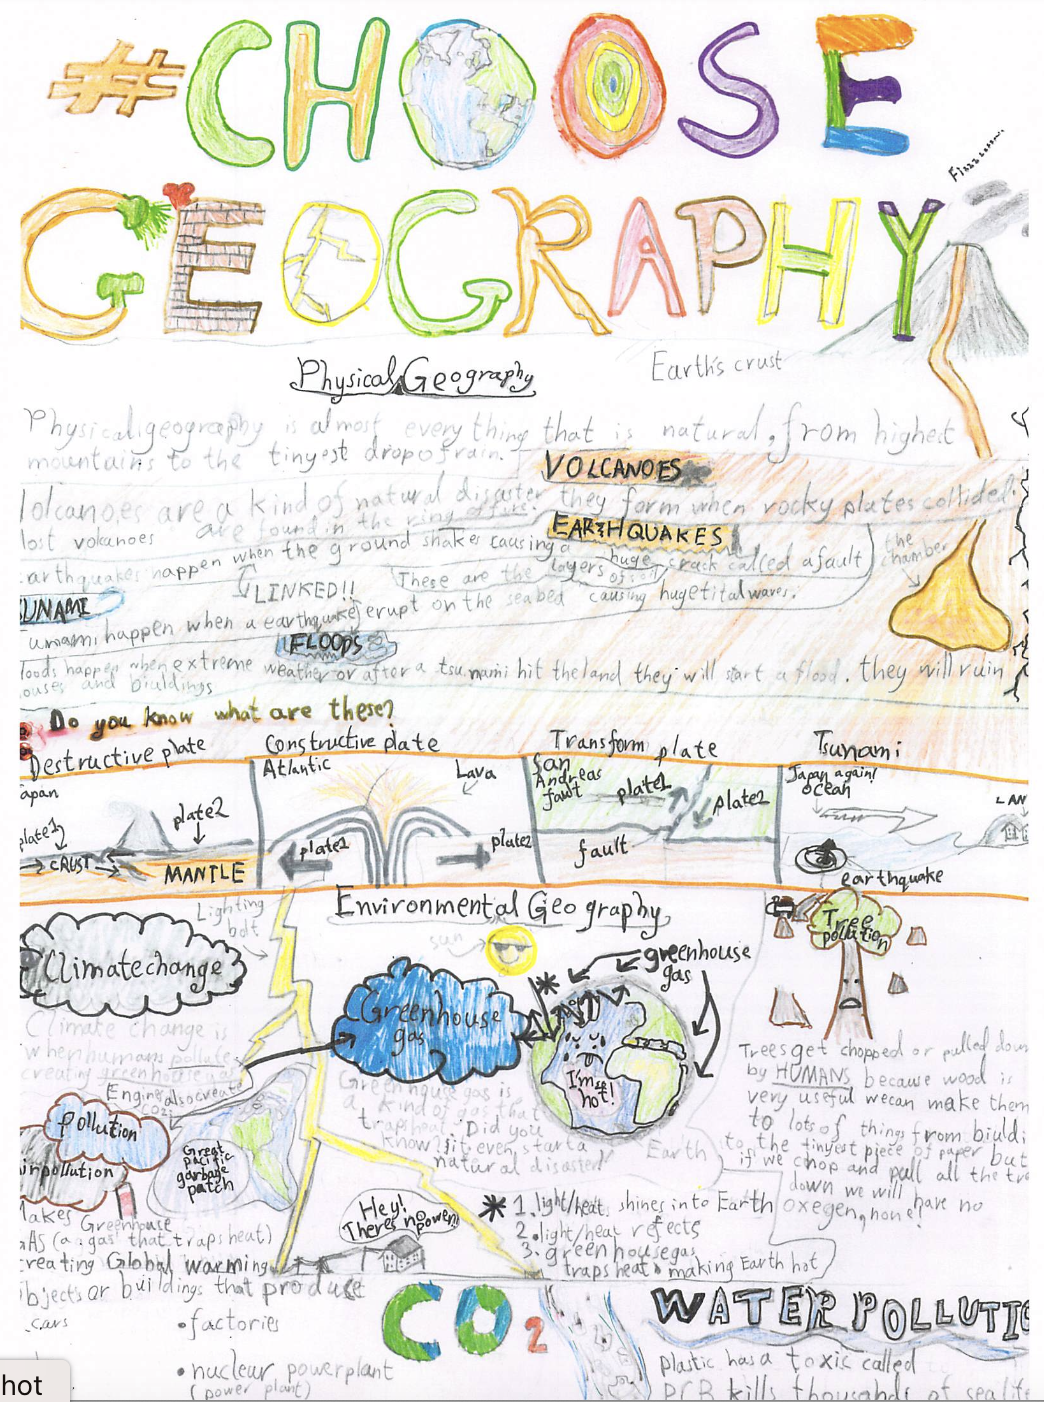 #CHOOSE
GEOGRAPHY
Fizzzzzzz...
Physical Geography
Earth's crust
Physical geography is almost everything that is natural, from highest
mountains to the tinyest drop of rain.
VOLCANOES
olcanoes are a kind of natural disaster they form when rocky plates collided.
ost volcanoes are found in the ring of fire.
EARTHQUAKES
arthquakes happen when the ground shakes causing a huge crack called a fault
the chamber
LINKED!!
These are the layers of soil
UNAMI
unami happen when a earthquake erupt on the seabed causing huge tital waves.
FLOODS
loods happen when extreme weather or after a tsunami hit the land they will start a flood. they will ruin
ouses and biuldings
Do you know what are these?
Destructive plate
Constructive plate
Transform plate
Tsunami
apan
plate1
plate2
CRUST
MANTLE
Atlantic
Lava
plate1
plate2
San
Andreas
fawt
plate1
plate2
fault
Japan again!
ocean
LAN
earthquake
Lighting
bolt
Environmental Geography
sun
greenhouse
gas
Tree
pollution
Climate change
Greenhouse
gas
I'm
hot!
Earth
Climate change is
when humans pollute
creating greenhouse gas
Engine also create
CO2
pollution
irpollution
Great
pacific
garbage
patch
Greenhouse gas is
a kind of gas that
traps heat. Did you
know? it even start a
natural disaster!
Trees get chopped or pulled down
by HUMANS because wood is
very useful we can make them
to lots of things from biuldi
to the tinyest piece of paper but
if we chop and pull all the tre
down we will have no
oxegen, none!
Hey!
There's no power!
1. light/heat shines into Earth
2. light/heat reflects
3. greenhouse gas
traps heat making Earth hot
akes Greenhouse
AS (a gas that traps heat)
reating Global warming
bjects or buildings that produce
CO2
cars
• factories
• nuclear powerplant
(power plant)
WATER POLLUTIO
plastic has a toxic called
PCB kills thousands of sea life
hot